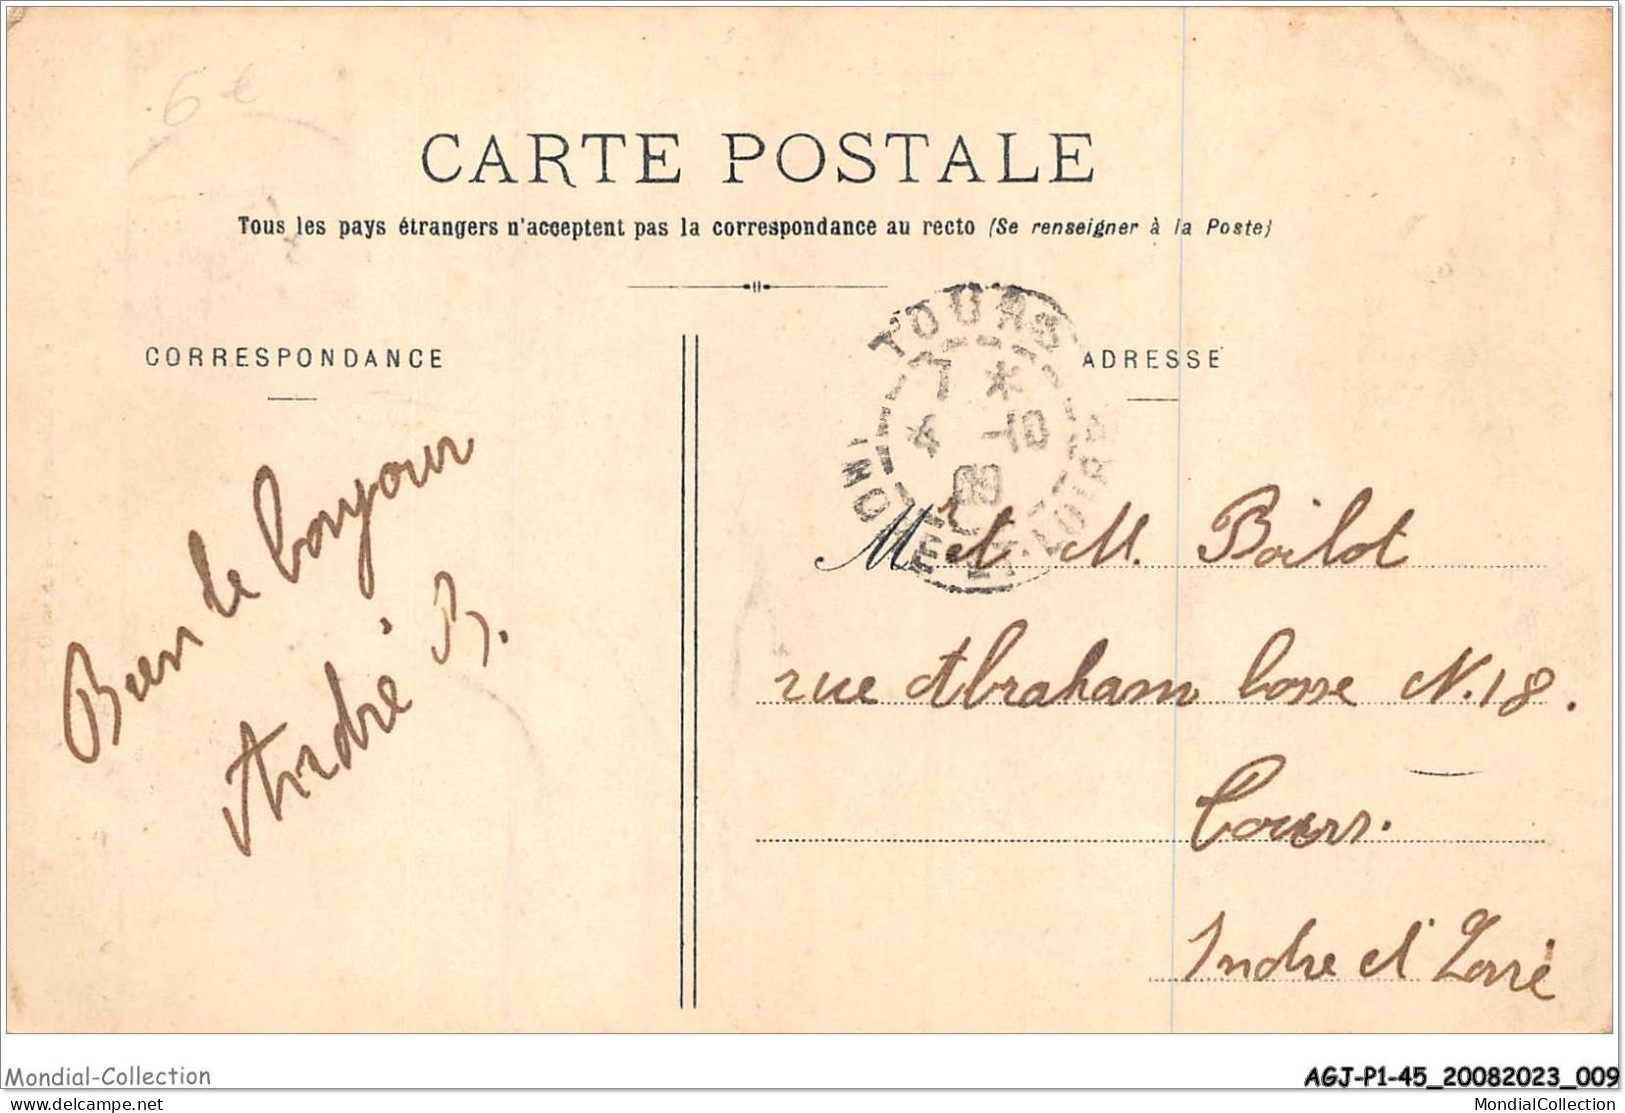 6 €
CARTE POSTALE
Tous les pays étrangers n'acceptent pas la correspondance au recto (Se renseigner à la Poste)
CORRESPONDANCE
ADRESSE
TOURS
7 *
4 -10
09
INDRE ET LOIRE
Bien le bonjour
André B.
M et M. Boilot
rue Abraham bosse N. 18.
Tours.
Indre et Loire
Mondial-Collection
AGJ-P1-45_20082023_009
mypostcard.com
MondialCollection